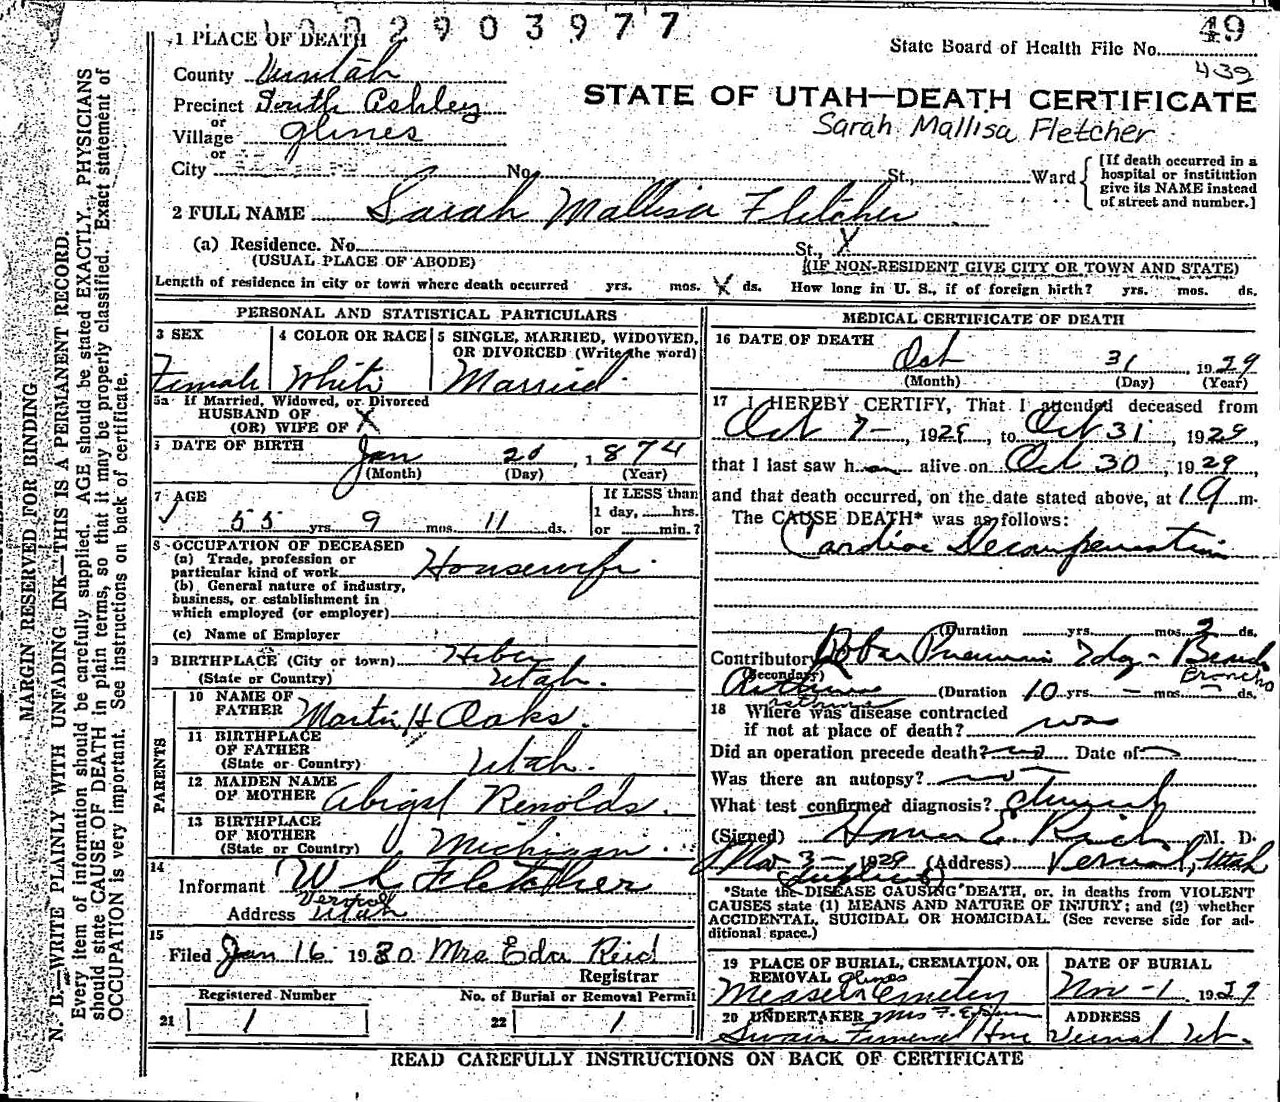 1002903977
49
1 PLACE OF DEATH
State Board of Health File No.
439
County Uintah
STATE OF UTAH—DEATH CERTIFICATE
Precinct South Ashley
Sarah Mallisa Fletcher
or
Village Glines
or
City No. St., Ward
[If death occurred in a
hospital or institution
give its NAME instead
of street and number.]
2 FULL NAME Sarah Mallisa Fletcher
(a) Residence. No. St., X
(USUAL PLACE OF ABODE) (IF NON-RESIDENT GIVE CITY OR TOWN AND STATE)
Length of residence in city or town where death occurred yrs. mos. X ds. How long in U. S., if of foreign birth? yrs. mos. ds.
PERSONAL AND STATISTICAL PARTICULARS
3 SEX
Female
4 COLOR OR RACE
White
5 SINGLE, MARRIED, WIDOWED,
OR DIVORCED (Write the word)
Married
5a If Married, Widowed, or Divorced
HUSBAND OF
(OR) WIFE OF X
6 DATE OF BIRTH
Jan 20, 1874
(Month) (Day) (Year)
7 AGE
55 yrs. 9 mos. 11 ds.
If LESS than
1 day, hrs.
or min.?
8 OCCUPATION OF DECEASED
(a) Trade, profession or
particular kind of work Housewife
(b) General nature of industry,
business, or establishment in
which employed (or employer)
(c) Name of Employer
9 BIRTHPLACE (City or town) Heber
(State or Country) Utah.
PARENTS
10 NAME OF
FATHER Martin H Oaks.
11 BIRTHPLACE
OF FATHER
(State or Country) Utah.
12 MAIDEN NAME
OF MOTHER Abigal Renolds.
13 BIRTHPLACE
OF MOTHER
(State or Country) Michigan.
14
Informant W L Fletcher
Vernal
Address Utah
15
Filed Jan 16 1930 Mrs Edna Reid
Registrar
Registered Number No. of Burial or Removal Permit
21 1 22 1
MEDICAL CERTIFICATE OF DEATH
16 DATE OF DEATH
Oct 31, 1929
(Month) (Day) (Year)
17 I HEREBY CERTIFY, That I attended deceased from
Oct 7-, 1929, to Oct 31, 1929
that I last saw h alive on Oct 30, 1929,
and that death occurred, on the date stated above, at 1 m.
The CAUSE DEATH* was as follows:
Cardiac Decompensation
(Duration yrs. mos. 2 ds.
Contributory Lobar Pneumonia 7dy - Bronch
(Secondary) Broncho
Asthma (Duration 10 yrs. - mos. - ds.
asthma
18 Where was disease contracted
if not at place of death? was
Did an operation precede death? no Date of
Was there an autopsy? no
What test confirmed diagnosis? clinical
(Signed) Homer E. Rich, M. D.
Nov 3- 1929 (Address) Vernal, Utah
*State the DISEASE CAUSING DEATH, or, in deaths from VIOLENT
CAUSES state (1) MEANS AND NATURE OF INJURY; and (2) whether
ACCIDENTAL, SUICIDAL OR HOMICIDAL. (See reverse side for ad-
ditional space.)
19 PLACE OF BURIAL, CREMATION, OR
REMOVAL Glines
Cemetery
DATE OF BURIAL
Nov-1 1929
20 UNDERTAKER Mrs F. E.
Swain Funeral Home
ADDRESS
Vernal Ut.
READ CAREFULLY INSTRUCTIONS ON BACK OF CERTIFICATE
MARGIN RESERVED FOR BINDING
N. B.—WRITE PLAINLY WITH UNFADING INK—THIS IS A PERMANENT RECORD.
Every item of information should be carefully supplied. AGE should be stated EXACTLY. PHYSICIANS
should state CAUSE OF DEATH in plain terms, so that it may be properly classified. Exact statement of
OCCUPATION is very important. See instructions on back of certificate.